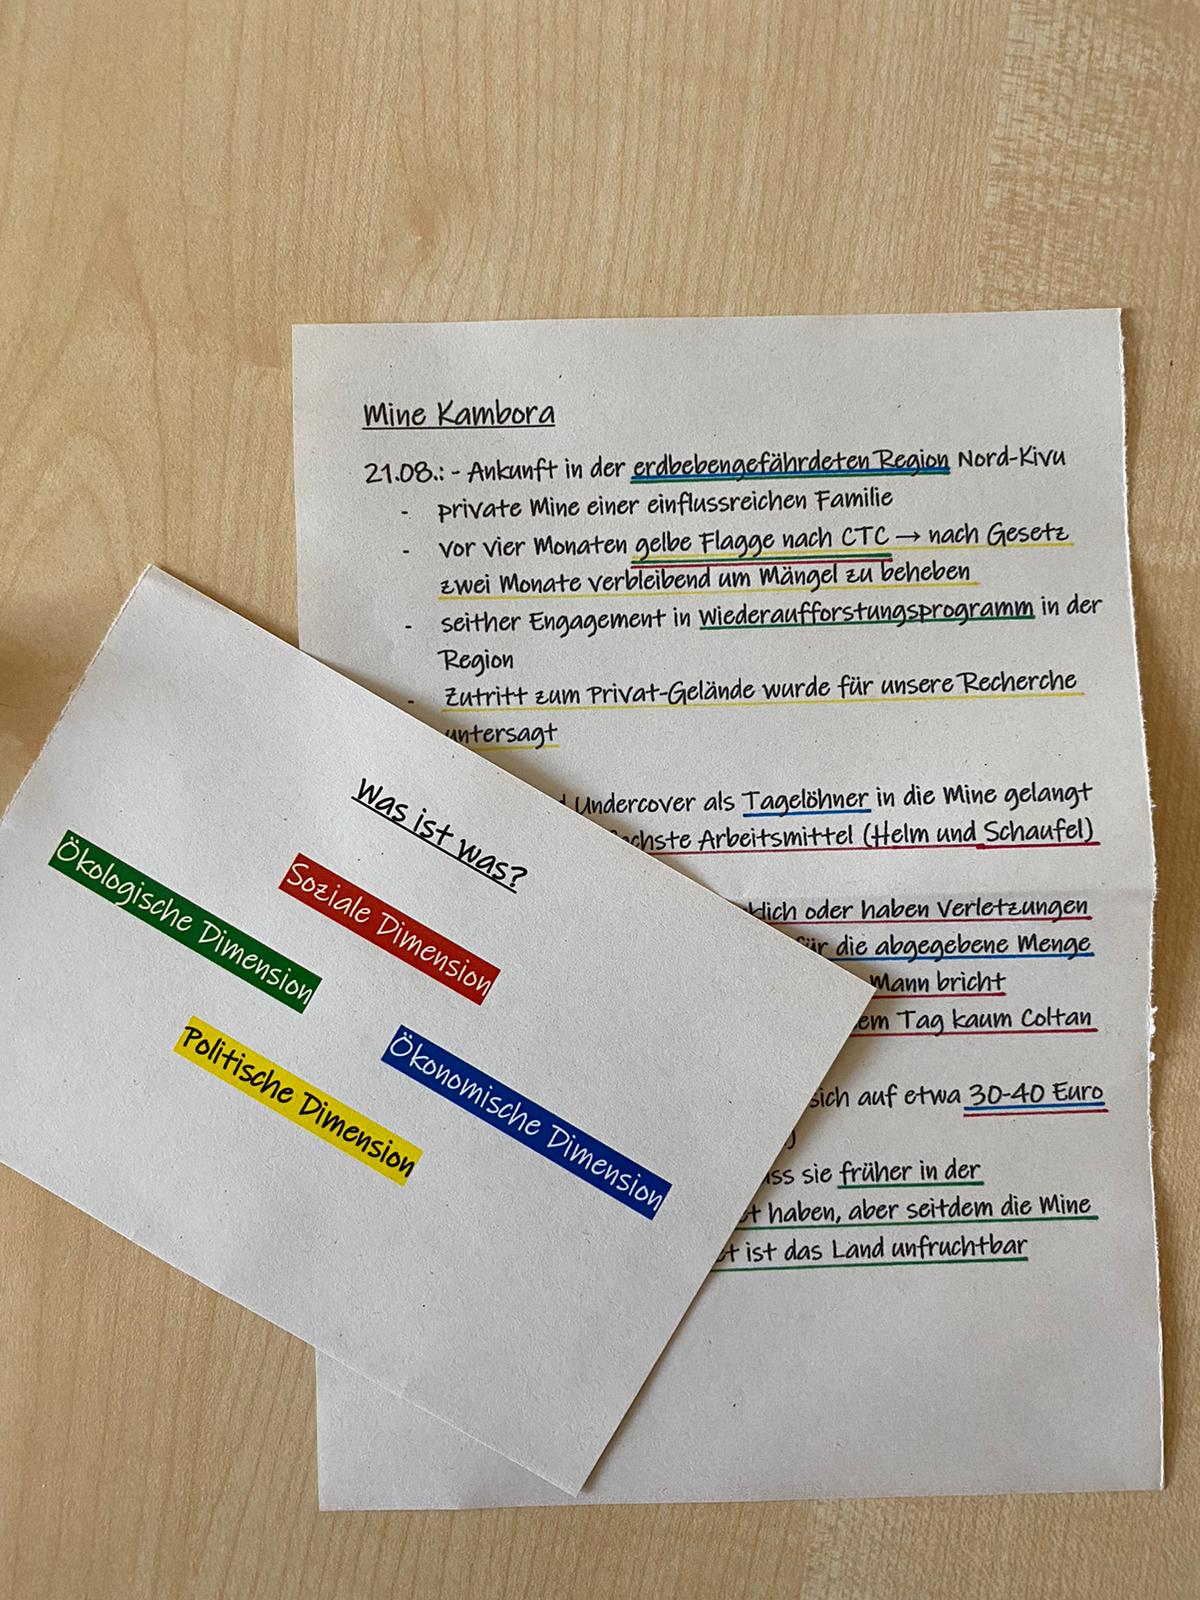 Mine Kambora
21.08.: - Ankunft in der erdbebengefährdeten Region Nord-Kivu
- private Mine einer einflussreichen Familie
- vor vier Monaten gelbe Flagge nach CTC → nach Gesetz
zwei Monate verbleibend um Mängel zu beheben
- seither Engagement in Wiederaufforstungsprogramm in der
Region
- Zutritt zum Privat-Gelände wurde für unsere Recherche
untersagt
Undercover als Tagelöhner in die Mine gelangt
Arbeitsmittel (Helm und Schaufel)
oder haben Verletzungen
für die abgegebene Menge
Mann bricht
Tag kaum Coltan
sich auf etwa 30-40 Euro
sie früher in der
haben, aber seitdem die Mine
ist das Land unfruchtbar
Was ist was?
Ökologische Dimension
Soziale Dimension
Politische Dimension
Ökonomische Dimension